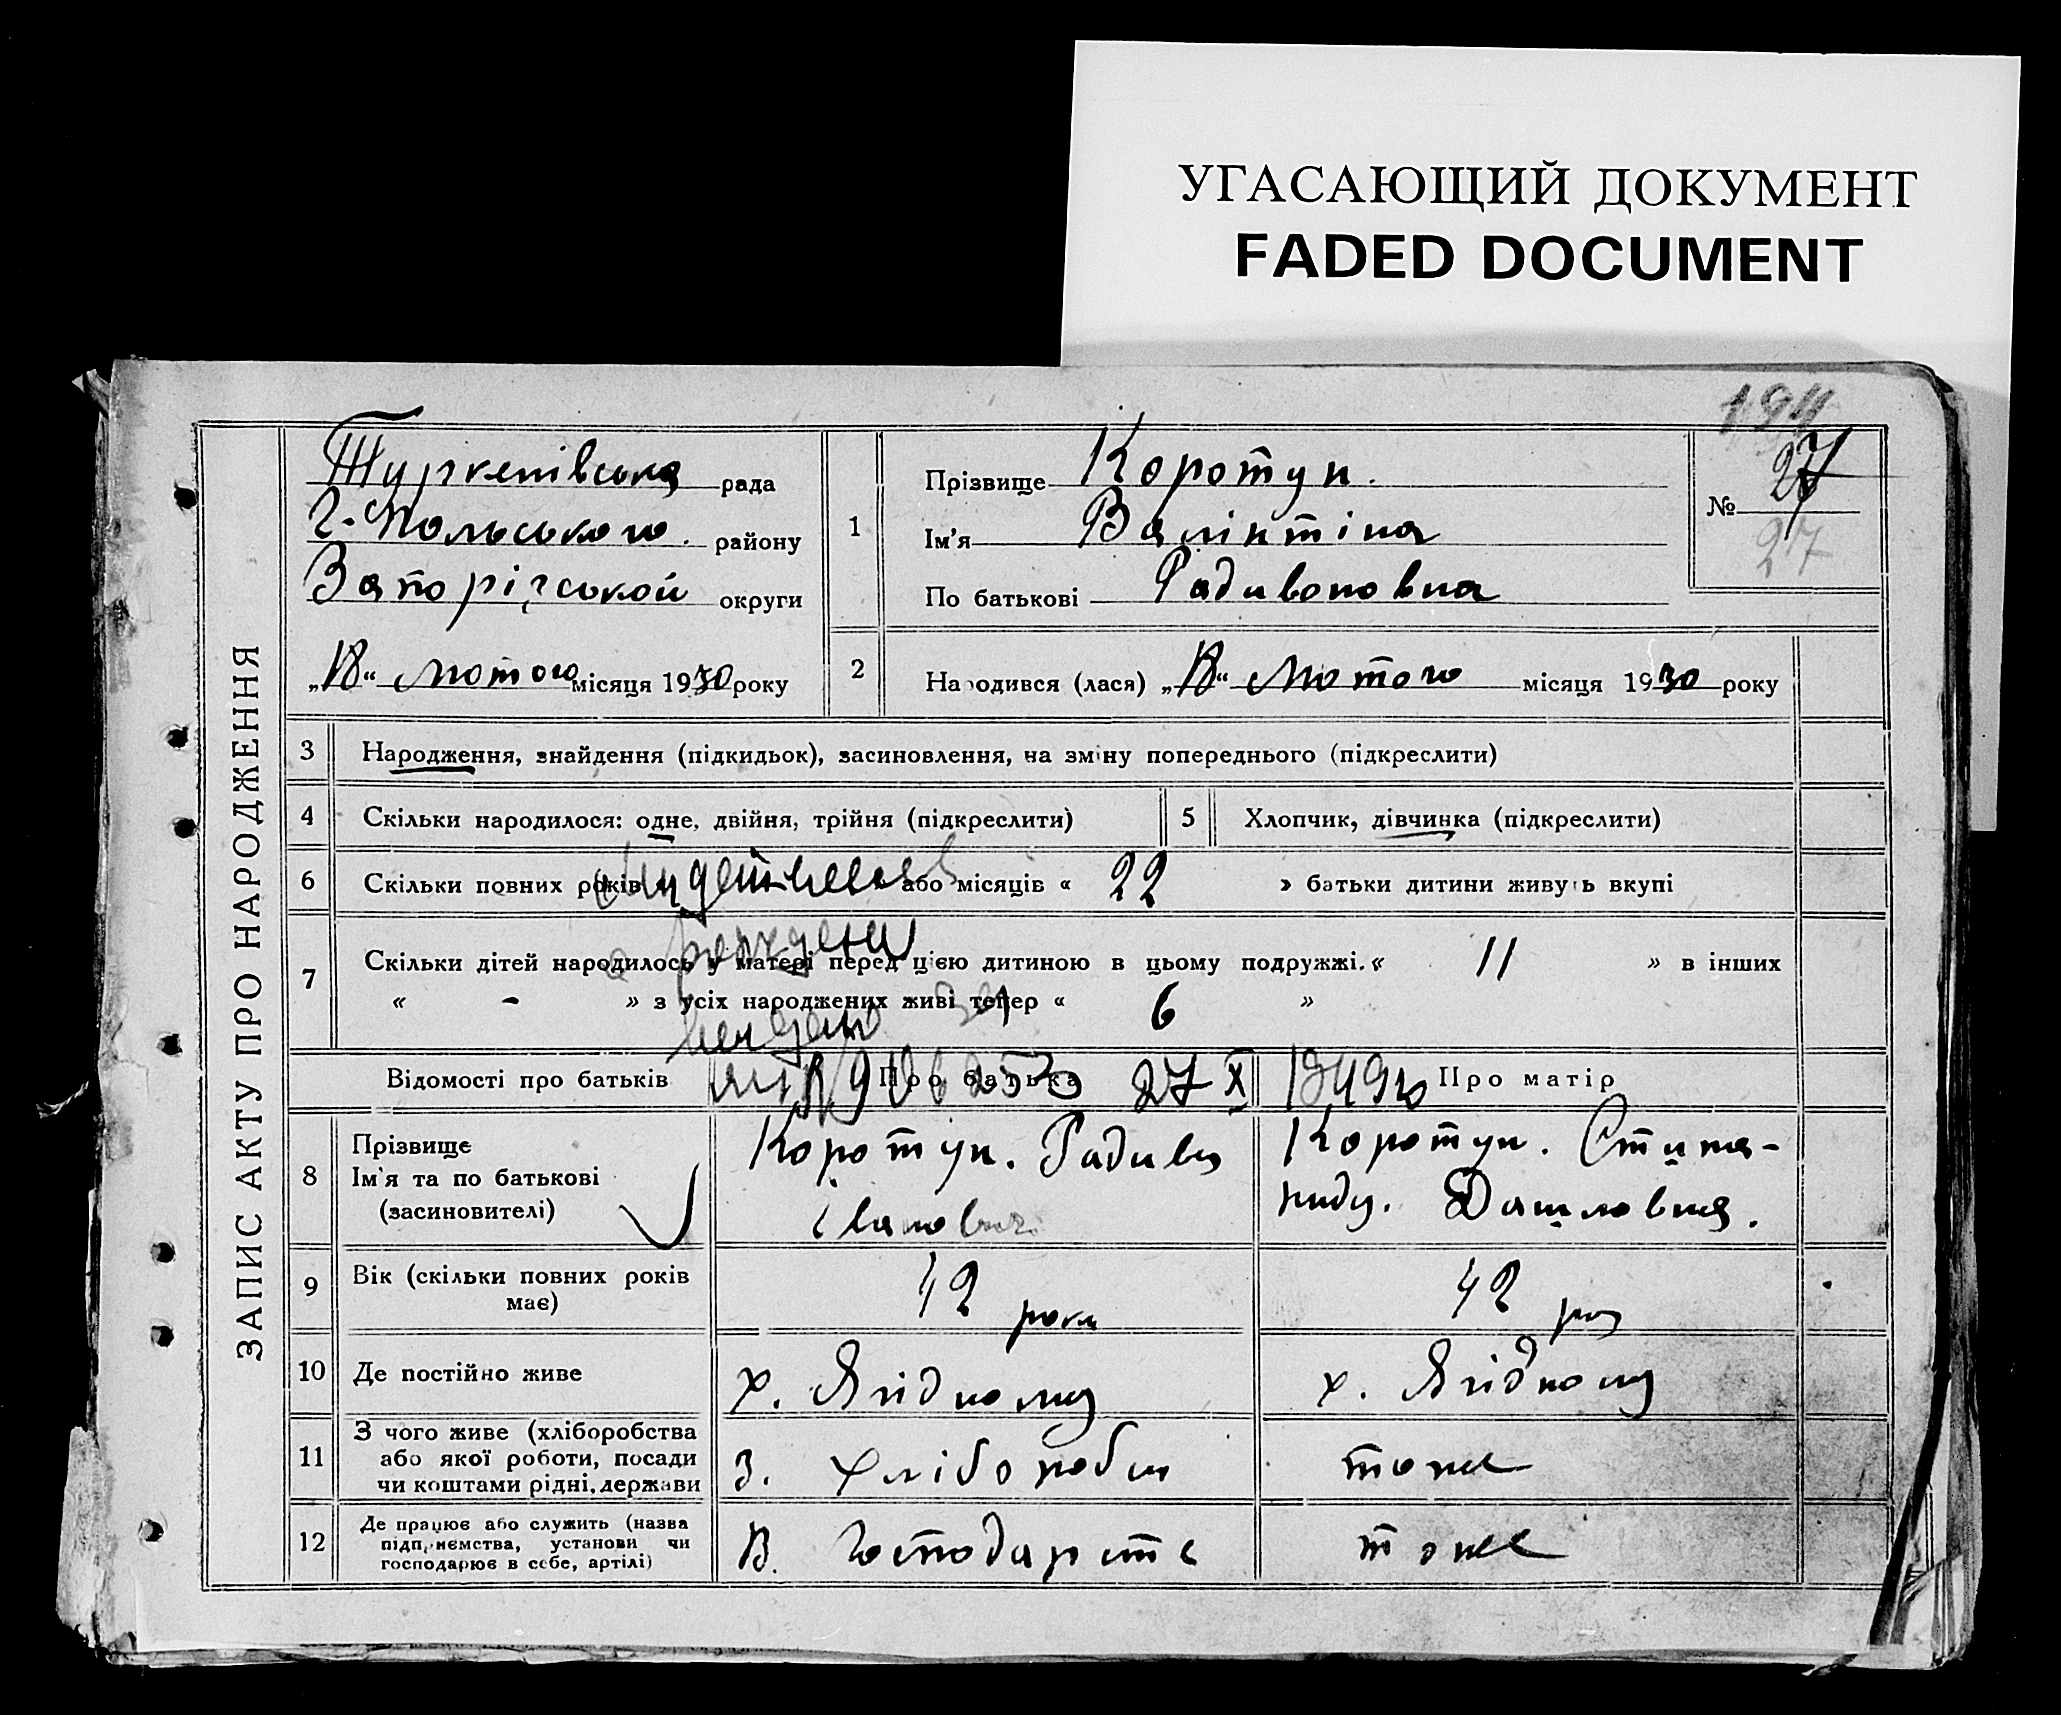 УГАСАЮЩИЙ ДОКУМЕНТ
FADED DOCUMENT
194
ЗАПИС АКТУ ПРО НАРОДЖЕННЯ
рада
Г-Польського району
Запоріжської округи
„18“ Лютого місяця 1930 року
1
Прізвище Коротун.
Ім'я Валінтіна
По батькові Радивоновна
№ 27
27
2
Народився (лася) „18“ Лютого місяця 1930 року
3 Народження, знайдення (підкидьок), засиновлення, на зміну попереднього (підкреслити)
4 Скільки народилося: одне, двійня, трійня (підкреслити)
5 Хлопчик, дівчинка (підкреслити)
6 Скільки повних років або місяців « 22 » батьки дитини живуть вкупі
7 Скільки дітей народилось у матері перед цією дитиною в цьому подружжі. « 11 » в інших
« - » з усіх народжених живі тепер « 6 »
Відомості про батьків Про батька Про матір
27 X 1949
8 Прізвище
Ім'я та по батькові
(засиновителі)
Коротун. Радивон
Іванович
Коротун.
9 Вік (скільки повних років
має)
42 роки
42
10 Де постійно живе х. Ягідному х. Ягідному
11 З чого живе (хліборобства
або якої роботи, посади
чи коштами рідні, держави
З. хліборобства
тоже
12 Де працює або служить (назва
підприємства, установи чи
господарює в себе, артілі)
В. господарстві
тоже